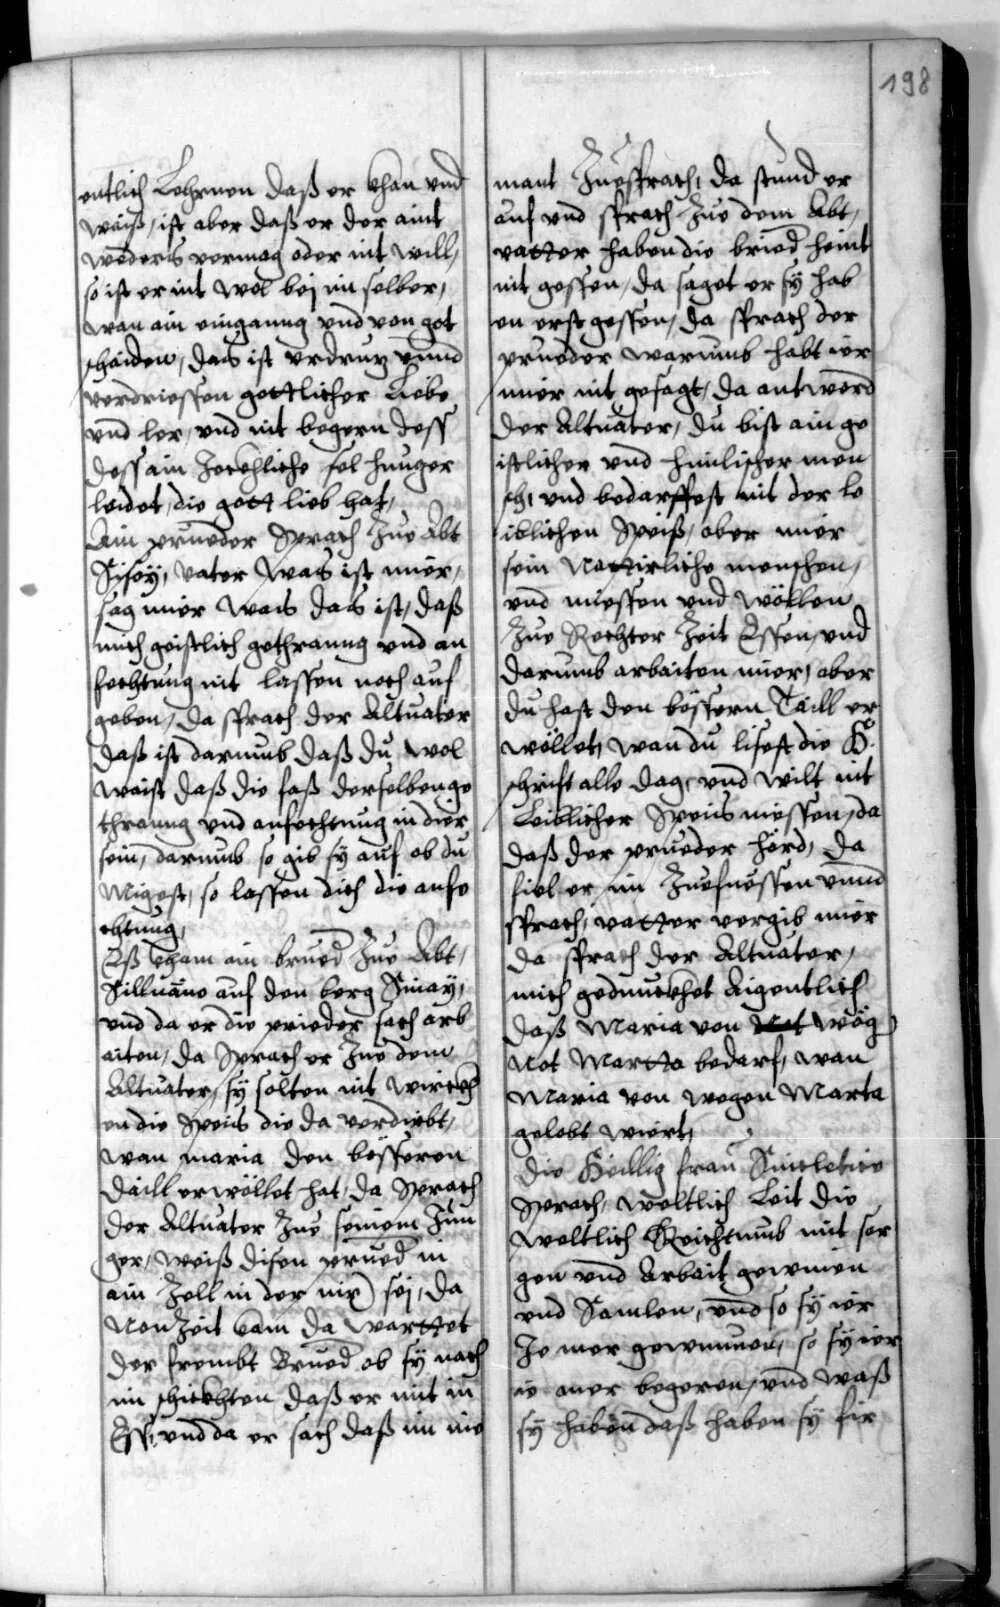 198
entlich Lehrnen daß er khan vnd
waiß, ist aber daß er der aint
weders vermag oder nit will,
so ist er nit wol bej im selber,
wan ain einganng vnd von got
schaiden, das ist vrdrutz vnnd
verdriessen gottlicher Liebe
vnd ler, vnd nit begern dess
dess ain Jecehliche sel hunger
leidet, die gott lieb hat,
Ain prueder Sprach Zue Abt
Sisoÿ, vater was ist mier,
sag mier was das ist, daß
mich geistlich gethranng vnd an
fechtung nit lassen noch auf
geben, da sprach der Altuater
daß ist darumb daß du wol
waist daß die faß derselben ge
thranng vnd anfechtung in dier
sein, darumb so gib sÿ auf ob du
Migest, so lassen dich die anfe
chtung,
Eß kham ain brued Zue Abt,
Silluano auf den berg Sinaÿ,
vnd da er die prieder sach arb
aiten, da Sprach er Zue dem
Altuater, sÿ solten nit wirckh
en die Speis die da verdirbt,
wan maria den bösseren
daill erwöllet hat, da Sprach
der Altuater Zue seinem Jun
ger, weiß disen prued in
ain Zell in der nix sej, da
Non Zeit kam da warttet
der frembt Brued ob sÿ nach
im schickhten daß er mit in
Ess, vnd da er sach daß im nie
mant Zuesprach, da stund er
auf vnd sprach Zue dem Abt,
vatter haben die bried heint
nit gessen, da saget er sÿ hab
en erst gessen, da sprach der
prueder warumb habt ier
mier nit gesagt, da antword
der Altuater, du bist ain ge
istlicher vnd himlischer men
sch, vnd bedarffest nit der le
iblichen Speiß, aber mier
sein Nattirliche menschen,
vnd miessen vnd wöllen
Zue Rechter Zeit Essen, vnd
darumb arbaiten mier, aber
du hast den bössern Taill er
wöllet, wan du lisest die H.
schrift alle dag, vnd wilt nit
Leiblicher Speis niessen, da
daß der prueder hörd, da
fiel er im Zuefuessen vnnd
sprach, vatter vergib mier
da sprach der Altuater,
mich geduncket Aigentlich
daß Maria von wög
Not Martta bedarf, wan
Maria von wegen Marta
gelobt wiert,
Die Heillig frau Sincletice
Sprach, weltlich Leit die
weltlich Reichtumb mit sor
gen vnd Arbait gewinen
vnd Samlen, vnd so sÿ ier
Je mer gewinnen, so sÿ ier
ie mer begeren, vnd waß
sÿ haben daß haben sÿ fir